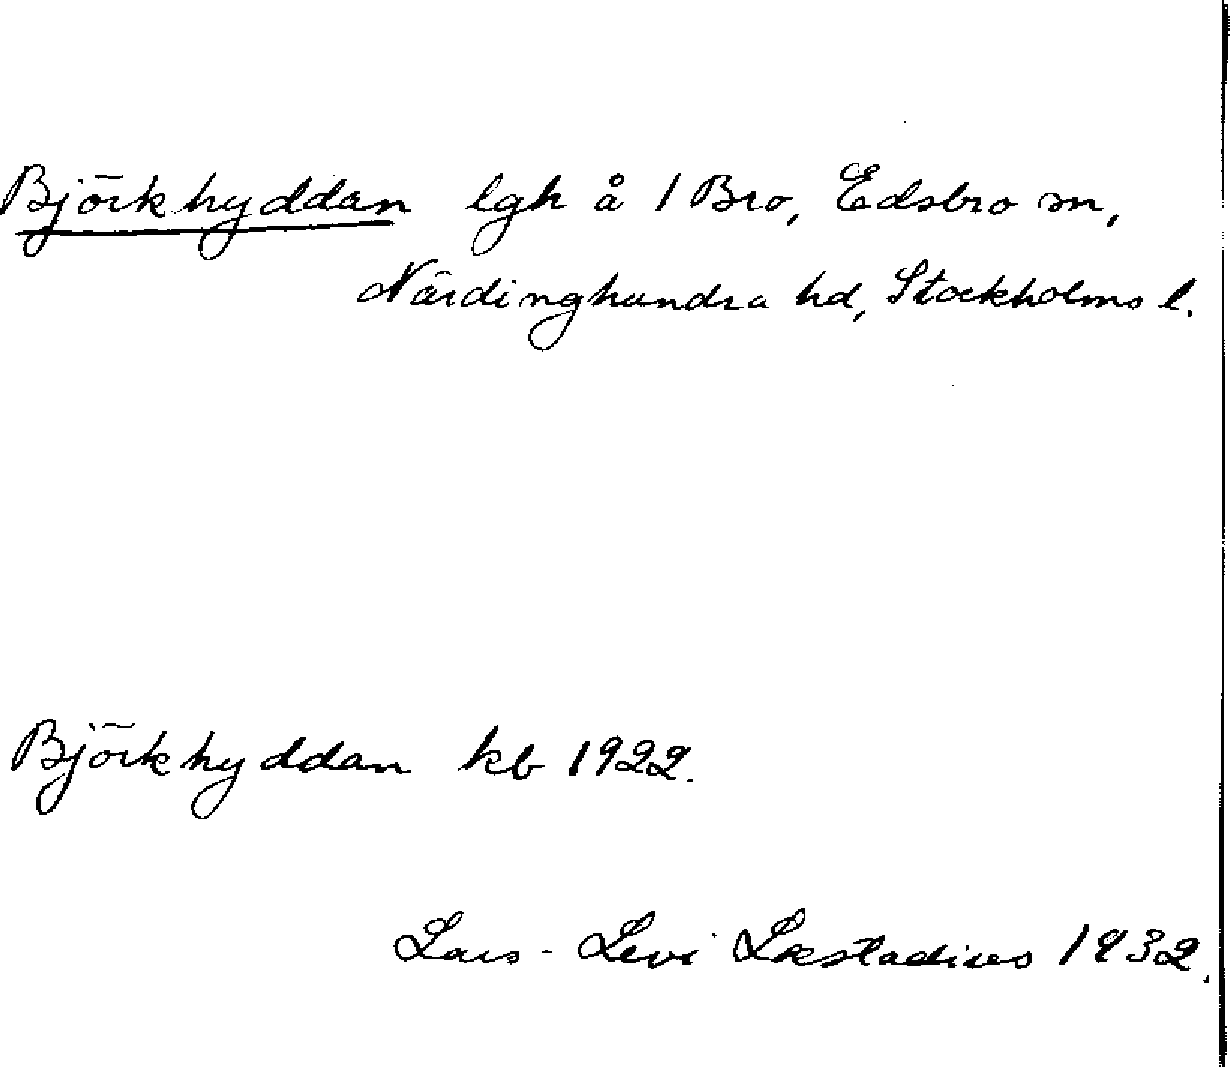 Björkhyddan lgh å 1 Bro, Edsbro sn,
Närdinghundra hd, Stockholms l.
Björkhyddan kb 1922.
Lars-Levi Læstadius 1932.